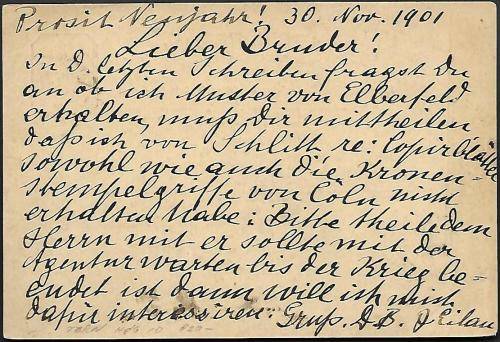 Prosit Neujahr! 30. Nov. 1901
Lieber Bruder!
In d. letzten Schreiben fragst Du
an ob ich Muster von Elberfeld
erhalten, muß Dir mittheilen
daß ich von Schlitt re: Copirblätter
sowohl wie auch die Kronen-
stempelgriffe von Cöln nicht
erhalten habe: Bitte theile dem
Herrn mit er sollte mit der
Agentur warten bis der Krieg be-
endet ist dann will ich mich
dafür interessiren: Gruß. D. B. J Eilau